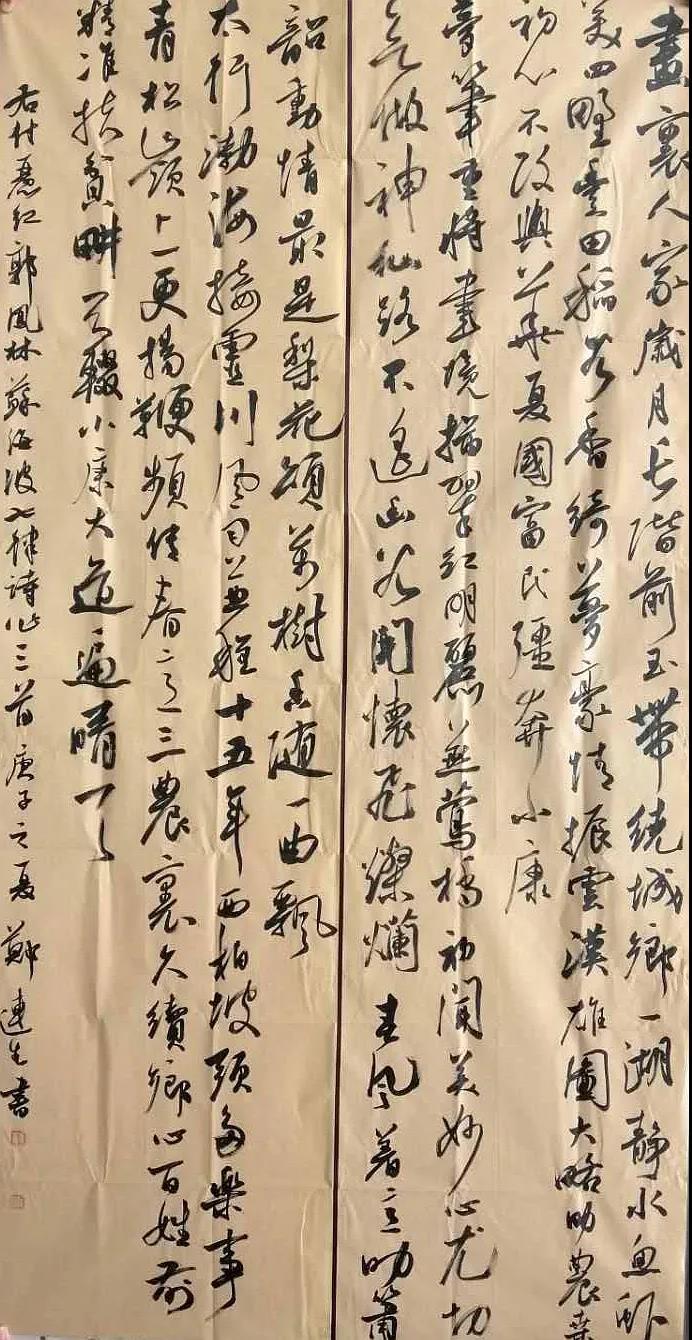 畫裏人家歲月長階前玉帶繞城鄉一湖靜水魚卧
美四野豐田稻谷香綺夢豪情振雲漢雄圖大略助農桑
初心不改興華夏國富民彊奔小康
夢筆重將畫境描翠紅明麗燕鶯橋初聞美妙心尤切
做神仙路不遥幽谷開懷飛燦爛春風着意助簫
韶動情最是梨花頌萬樹香隨一曲飄
太行渤海接靈川風雨兼程十五年西柏坡頭多樂事
青松嶺上更揚鞭頻傳春意三農裏久續鄉心百姓前
精准扶貧畊不輟小康大道遍晴天
右付紅郭鳳林蘇海波七律詩作三首庚子之夏鄭連生書